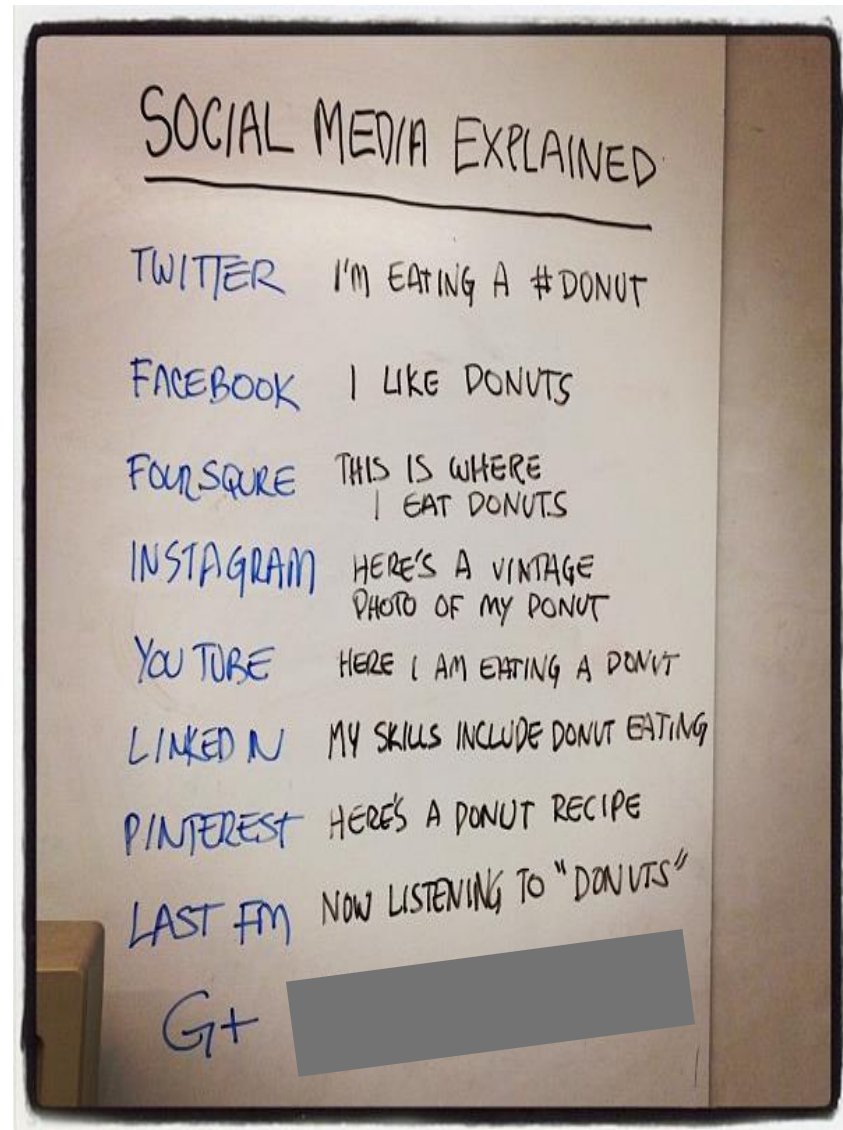 SOCIAL MEDIA EXPLAINED
TWITTER I'M EATING A #DONUT
FACEBOOK I LIKE DONUTS
FOURSQURE THIS IS WHERE
I EAT DONUTS
INSTAGRAM HERE'S A VINTAGE
PHOTO OF MY DONUT
YOU TUBE HERE I AM EATING A DONUT
LINKED IN MY SKILLS INCLUDE DONUT EATING
PINTEREST HERE'S A DONUT RECIPE
LAST FM NOW LISTENING TO "DONUTS"
G+